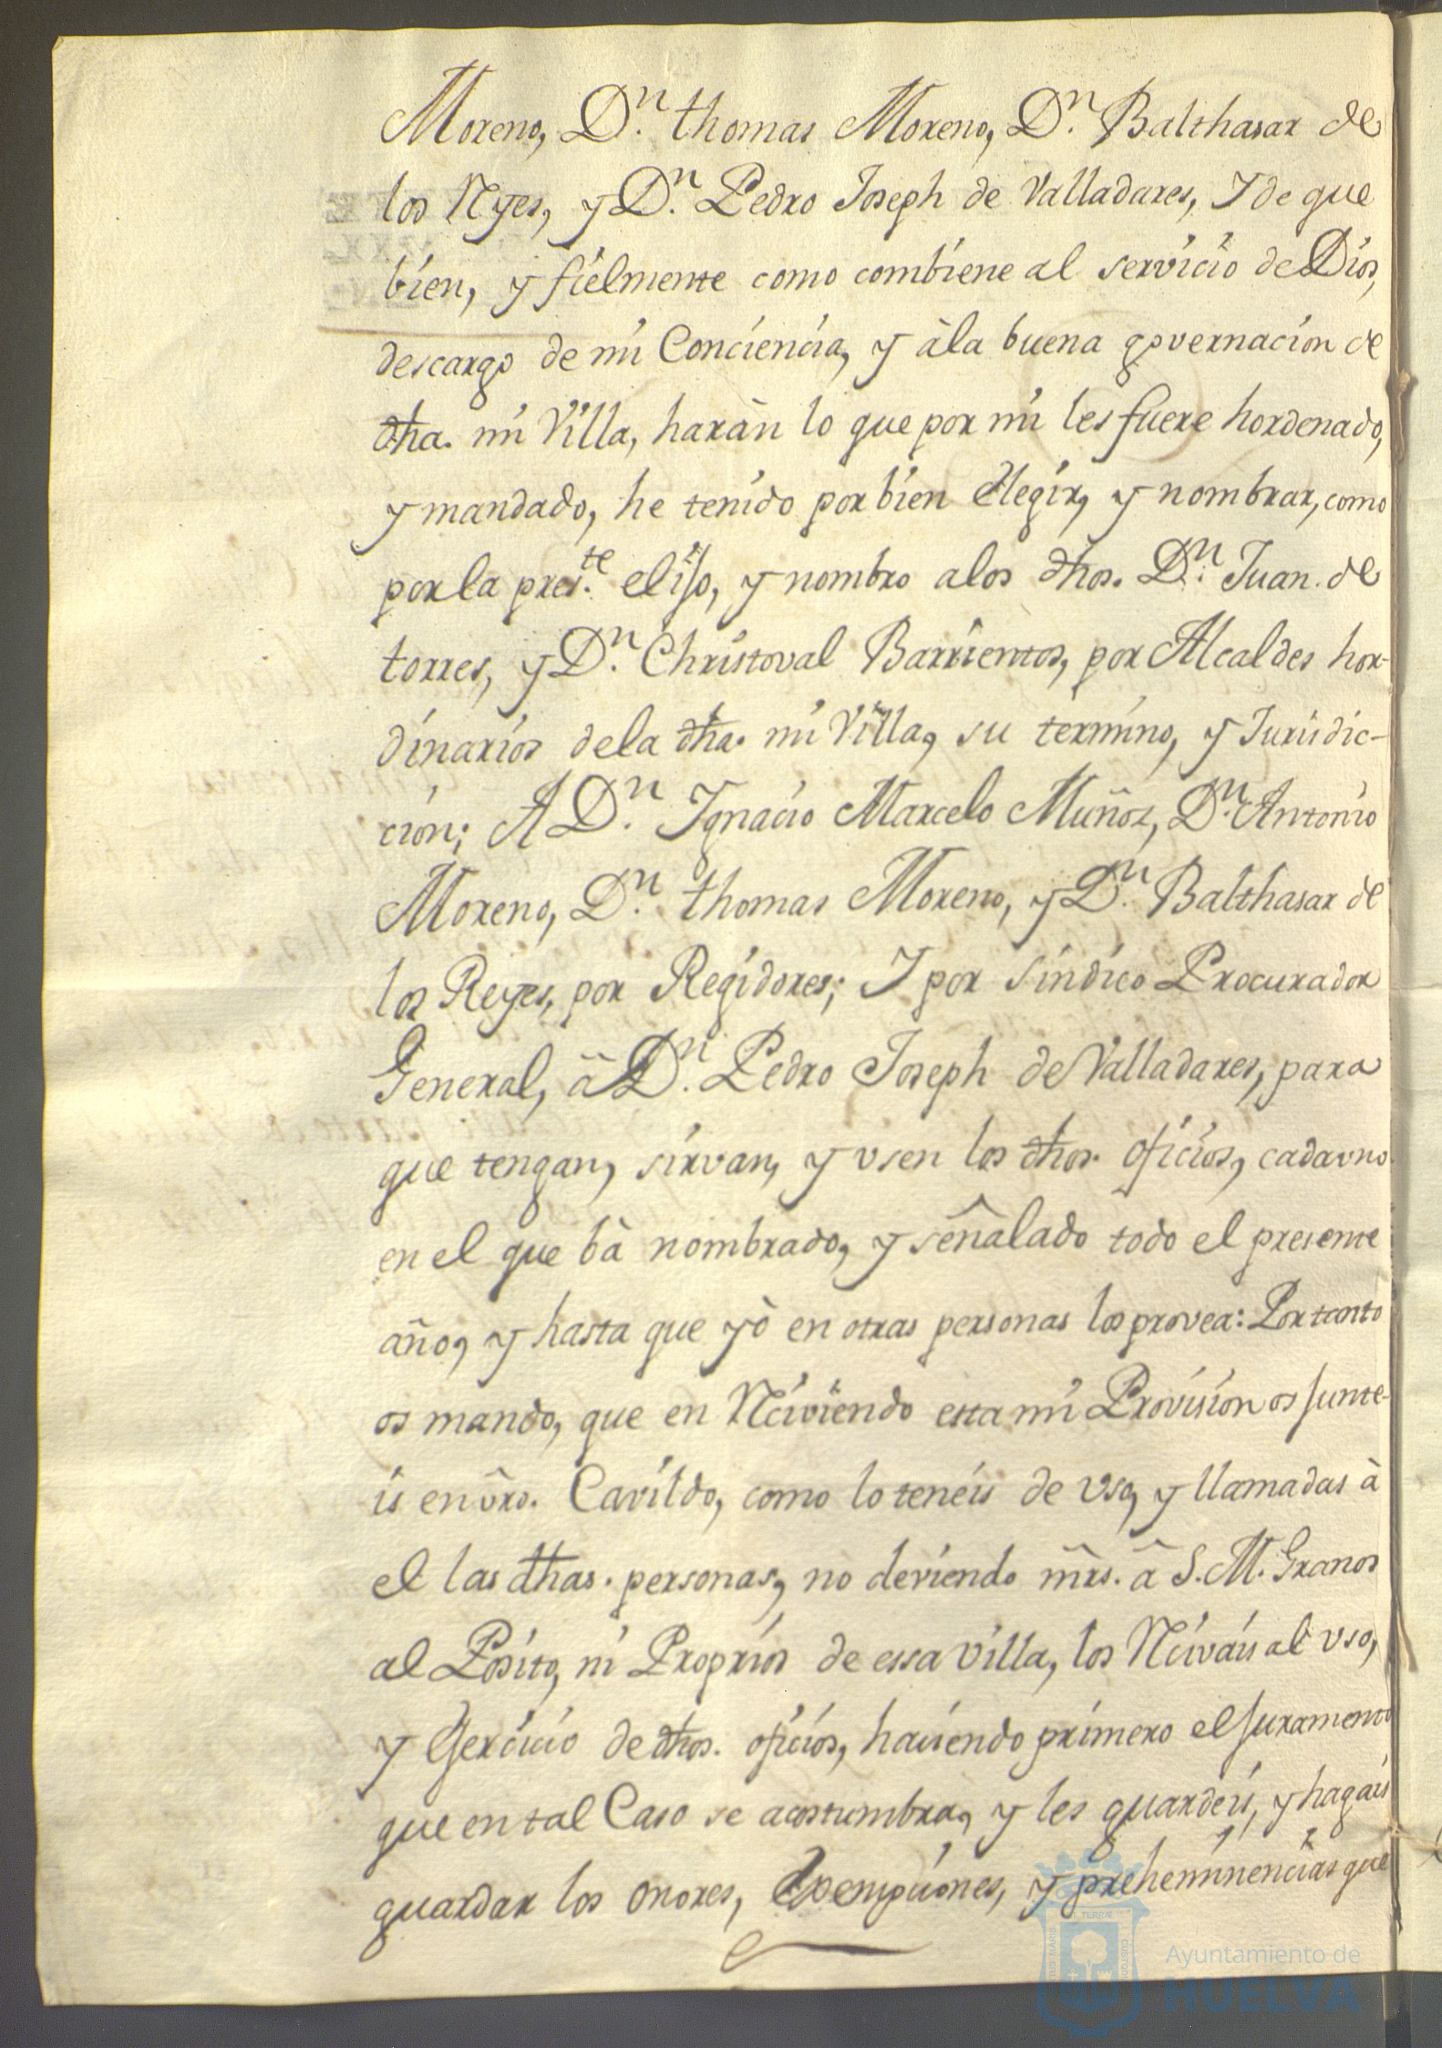 Moreno, Dn. thomas Moreno, Dn. Balthasar de
los Reyes, y Dn. Pedro Joseph de Valladares, Y de que
bien, y fielmente como combiene al servicio de Dios,
descargo de mi Conciencia, y àla buena governacion de
dha. mi Villa, haràn lo que por mi les fuere hordenado,
y mandado, he tenido por bien elegir, y nombrar, como
por la preste. elijo, y nombro a los dhos. Dn. Juan de
torres, y Dn. Christoval Barrientos, por Alcaldes hor-
dinarios de la dha. mi Villa, su termino, y Jurisdic-
cion; A Dn. Ygnacio Marcelo Muñoz, Dn. Antonio
Moreno, Dn. thomas Moreno, y Dn. Balthasar de
los Reyes, por Regidores; Y por sindico Procurador
General, â Dn. Pedro Joseph de Valladares, para
que tengan, sirvan, y vsen los dhos. oficios, cada vno
en el que bà nombrado, y señalado todo el presente
año, y hasta que yò en otras personas los provea: Por tanto
os mando, que en Reciviendo esta mi Provision os junte-
is en vro. Cavildo, como lo teneis de vso, y llamadas à
el las dhas. personas, no deviendo mrs. â S. M. Granos
al Posito, ni Proprios de essa villa, los Recivais al vso,
y Exercicio de dhos. oficios, haciendo primero el juramento
que en tal Caso se acostumbra, y les guardeis, y hagais
guardar los onores, Exempciones, y preheminencias que
Ayuntamiento de
HUELVA